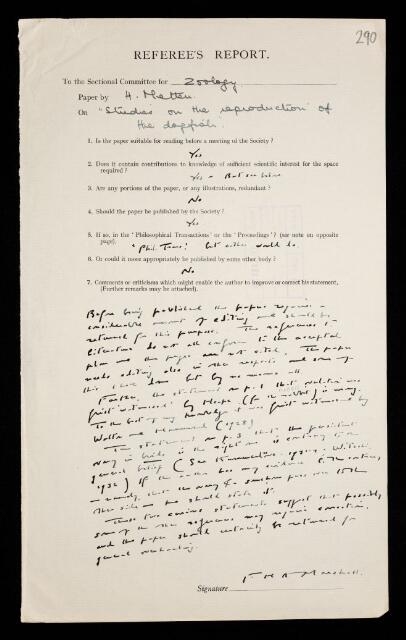 290
REFEREE'S REPORT.
To the Sectional Committee for Zoology
Paper by H. Metten
On "Studies on the reproduction of
the dogfish".
1. Is the paper suitable for reading before a meeting of the Society?
Yes
2. Does it contain contributions to knowledge of sufficient scientific interest for the space
required?
Yes - But see below
3. Are any portions of the paper, or any illustrations, redundant?
No
4. Should the paper be published by the Society?
Yes
5. If so, in the 'Philosophical Transactions' or the 'Proceedings'? (see note on opposite
page).
'Phil. Trans.' but either would do.
6. Or could it more appropriately be published by some other body?
No
7. Comments or criticisms which might enable the author to improve or correct his statement,
(Further remarks may be attached).
Before being published the paper requires a
considerable amount of editing and should be
returned for this purpose. The references to
literature do not all conform to the accepted
plan and the pages are not cited. The paper
needs editing also in other respects and some of
this I have done but by no means all
Further, the statement on p. 1 that ovulation was
first witnessed by Heape (for the rabbit) is wrong.
To the best of my knowledge it was first witnessed by
Walton and Hammond (1928)
The statement on p. 3 that the persistent
ovary in birds is the right one is contrary to
general belief (See
1932) If the author has any evidence to the contrary
this side
These two
some of the other references may require correction.
and the paper should certainly be returned for
general overhauling.
F H A Marshall.
Signature